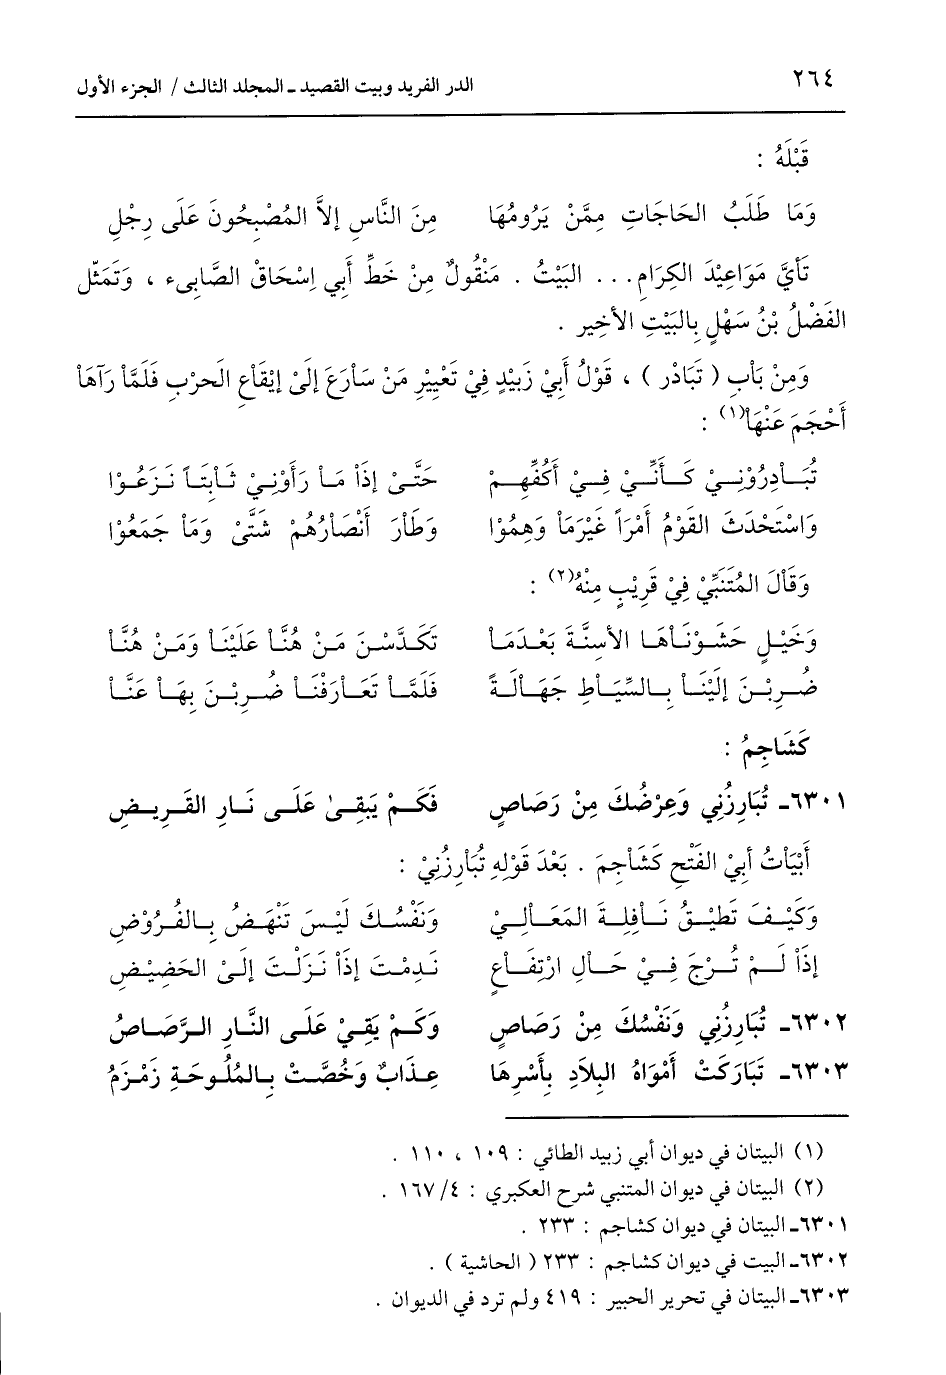 ٢٦٤ الدر الفريد وبيت القصيد ـ المجلد الثالث / الجزء الأول
قَبْلَهُ :
وَمَا طَلَبُ الحَاجَاتِ مِمَّنْ يَرُومُهَا مِنَ النَّاسِ إلاَّ المُصْبِحُونَ عَلَى رِجْلِ
تَأَيَّ مَوَاعِيْدَ الكِرَامِ . . . البَيْتُ . مَنْقُولٌ مِنْ خَطِّ أَبِي إِسْحَاقْ الصَّابِىء ، وَتَمَثّل
الفَضْلُ بْنُ سَهْلٍ بِالبَيْتِ الأخِير .
وَمِنْ بَاْبِ ( تَبَادْر ) ، قَوْلُ أَبِيْ زَبيْدٍ فِيْ تَعْبِيْرِ مَنْ سَاْرَعَ إلَىْ إيْقَاْعِ الحرْبِ فَلَمَّاْ رَآهَاْ
أَحْجَمَ عَنْهَاْ(١) :
تُبَـاْدِرُوْنِـيْ كَـأَنِّـيْ فِـيْ أَكُفِّهِـمْ حَتَّـىْ إذَاْ مَـاْ رَأَوْنِـيْ ثَـابَتَـاً نَـزَعُـوْا
وَاسْتَحْدَثَ القَوْمُ أَمْرَاً غَيْرَمَاْ وَهِمُوْا وَطَاْرَ أَنْصَاْرُهُمْ شَتَّىْ وَمَاْ جَمَعُوْا
وَقَاْلَ المُتَنَبِّيْ فِيْ قَرِيْبٍ مِنْهُ(٢) :
وَخَيْـلٍ حَشَـوْنَـاْهَـا الأسِنَّـةَ بَعْـدَمَـا تَكَـدَّسْـنَ مَـنْ هُنَّـاْ عَلَيْنَـاْ وَمَـنْ هُنَّـا
ضُـرِبْـنَ إلَيْنَـاْ بِـالسِّيَـاْطِ جَهَـالَـةً فَلَمَّـا تَعَـارَفْنَـاْ ضُـرِبْـنَ بِهَـاْ عَنَّـا
كَشَاجِمُ :
٦٣٠١ـ تُبَارِزُنِي وَعِرْضُكَ مِنْ رَصَاصٍ فَكَـمْ يَبْقِـىْ عَلَـى نَـارِ القَـرِيـضِ
أَبْيَاْتُ أَبِيْ الفَتْحِ كَشَاْجِمَ . بَعْدَ قَوْلِهِ تُبَاْرِزُنِيْ :
وَكَيْـفَ تَطِيْـقُ نَـاْفِلِـةَ المَعَـاْلِـيْ وَنَفْسُـكَ لَيْـسَ تَنْهَـضُ بِـالفُـرُوْضِ
إذَاْ لَـمْ تُـرْجَ فِـيْ حَـاْلِ ارْتِفَـاْعٍ نَـدِمْـتَ إذَاْ نَـزَلْـتَ إلَىْ الحَضِيْـضِ
٦٣٠٢ـ تُبَارِزُنِي وَنَفْسُكَ مِنْ رَصَاصٍ وَكَـمْ يَقِـيْ عَلَـى النَّـارِ الـرَّصَـاصُ
٦٣٠٣ـ تَبَارَكَتْ أَمْوَاهُ البِلاَدِ بِأَسْرِهَا عِـذَابٌ وَخُصَّـتْ بِـالمُلُـوحَـةِ زَمْـزَمُ
(١) البيتان في ديوان أبي زبيد الطائي : ١٠٩ ، ١١٠ .
(٢) البيتان في ديوان المتنبي شرح العكبري : ٤/ ١٦٧ .
٦٣٠١ـ البيتان في ديوان كشاجم : ٢٣٣ .
٦٣٠٢ـ البيت في ديوان كشاجم : ٢٣٣ ( الحاشية ) .
٦٣٠٣ـ البيتان في تحرير الحبير : ٤١٩ ولم ترد في الديوان .